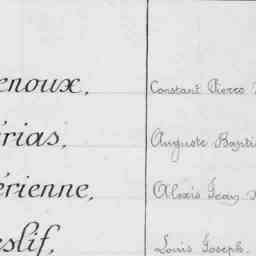 enoux, Constant Pierre
érias, Auguste Bapti
érienne, Alexis Jean
eslif, Louis Joseph.